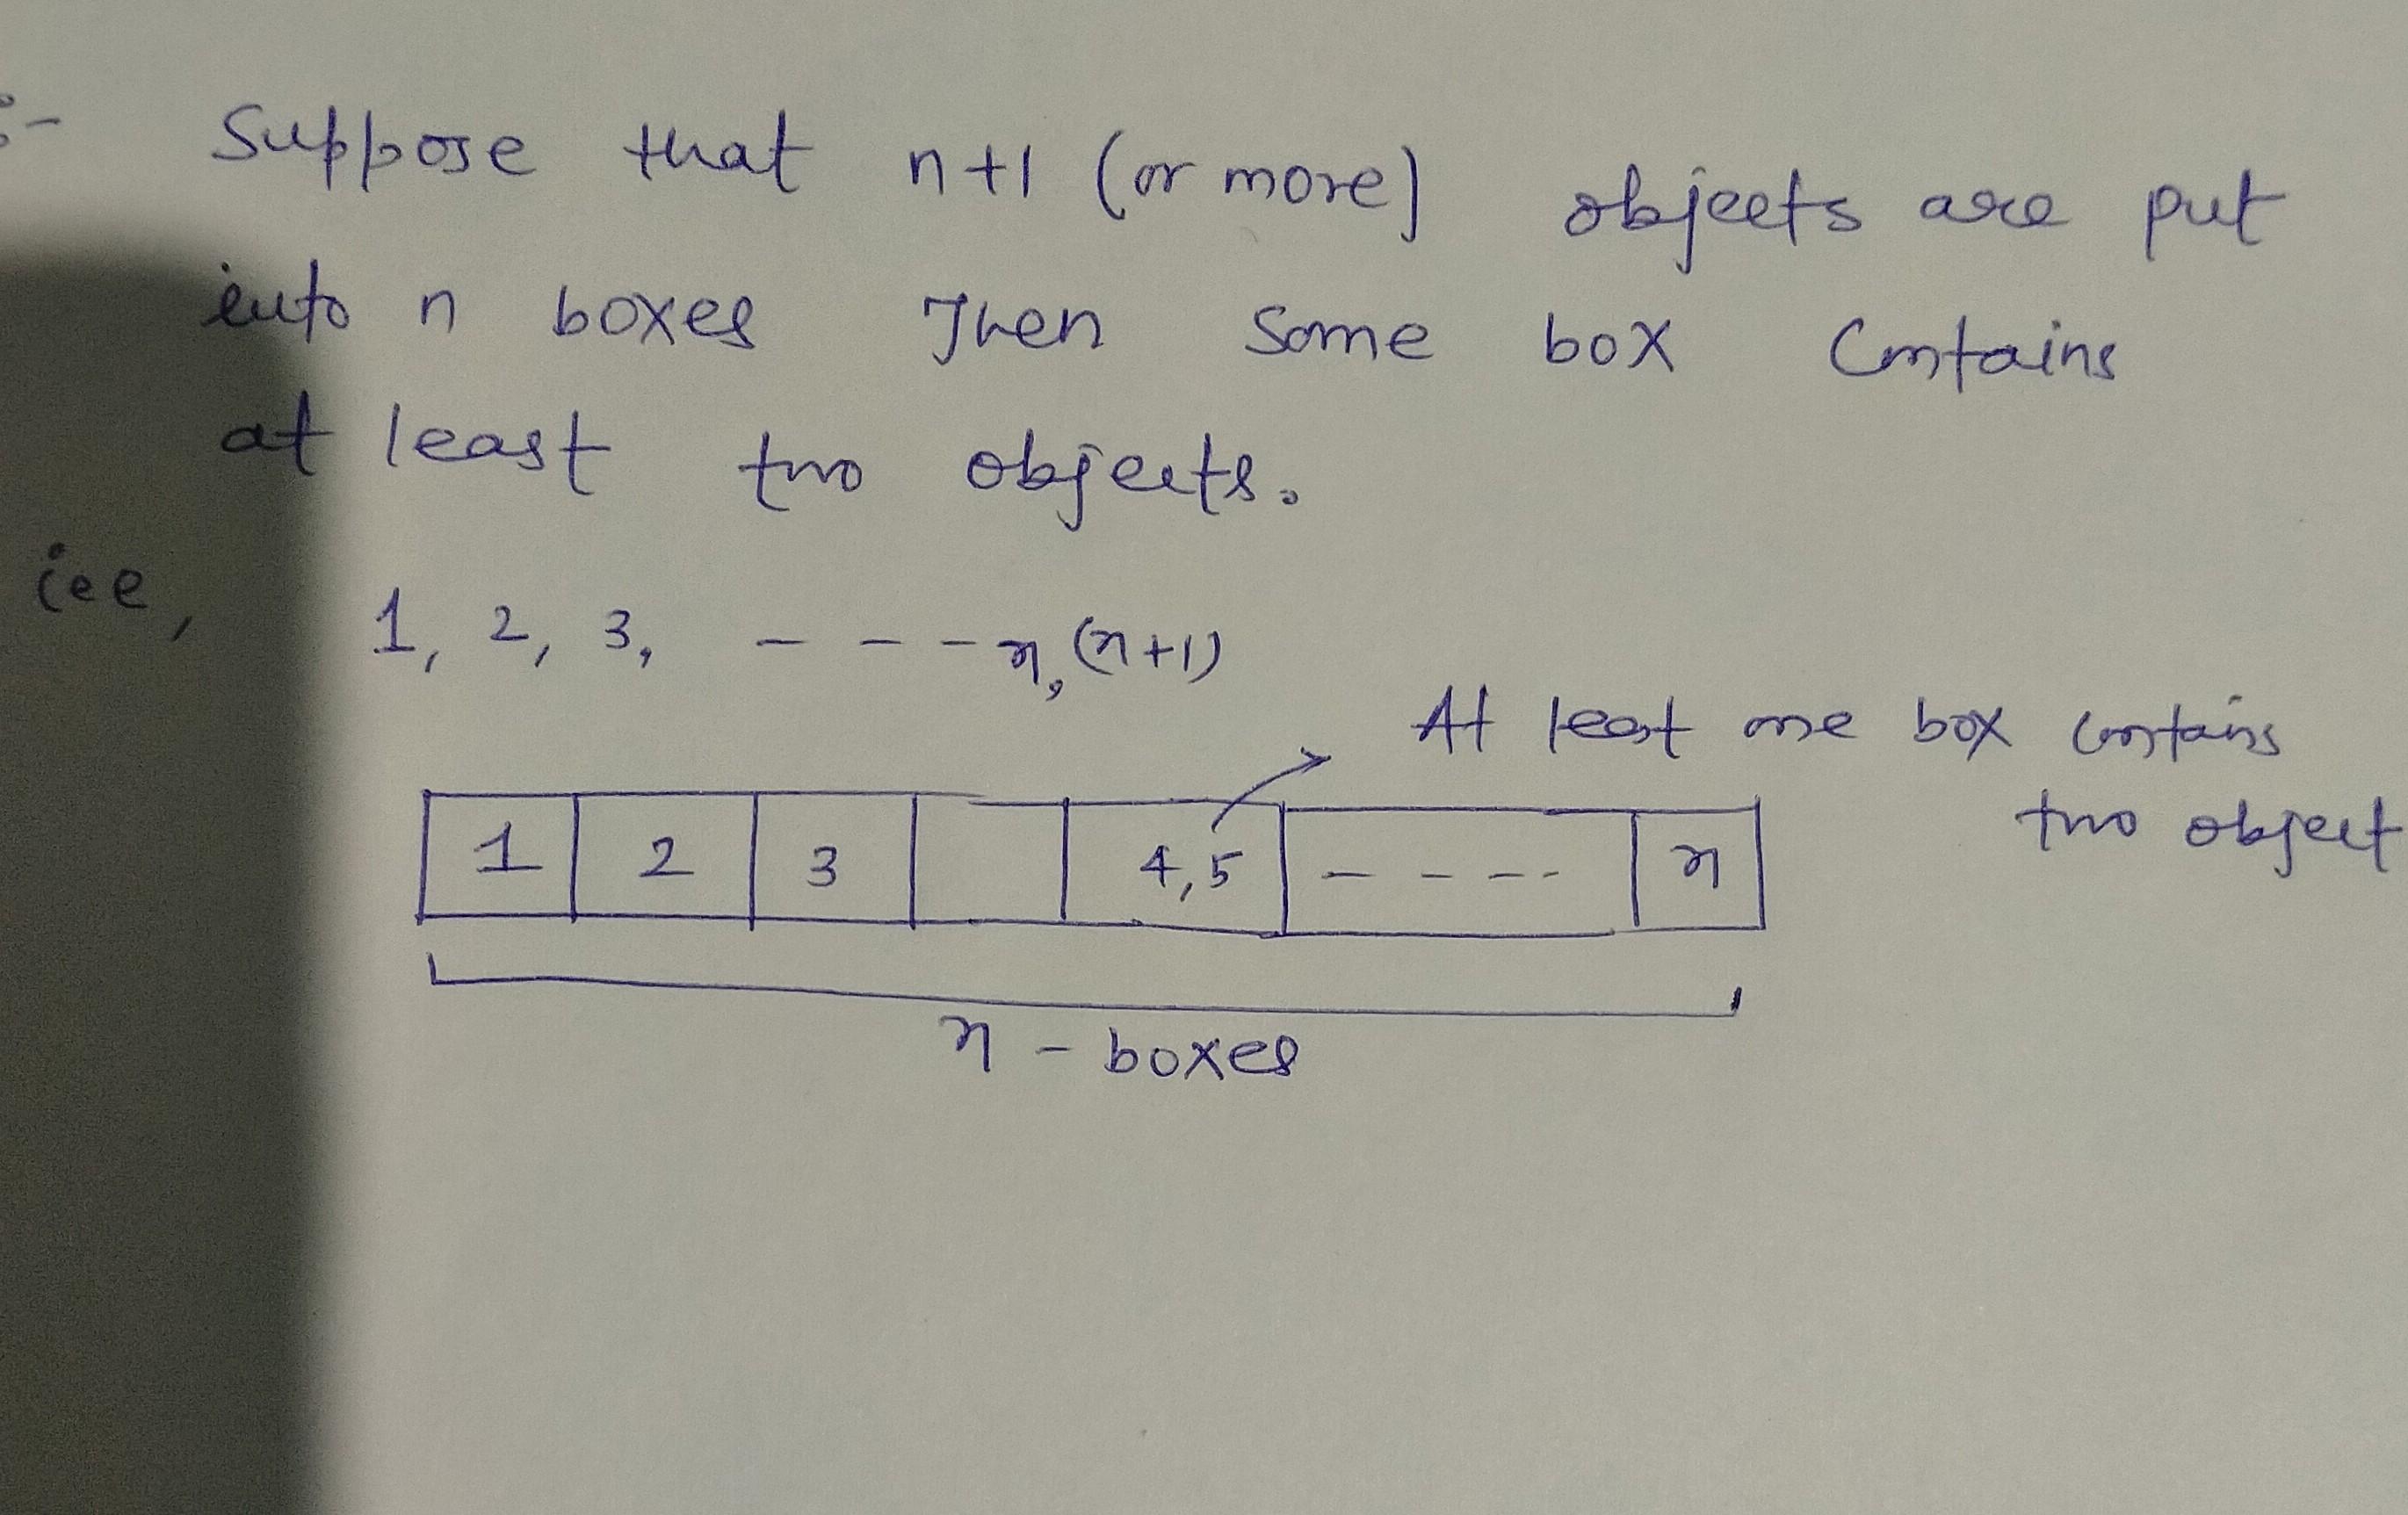 :- Suppose that n+1 (or more) objects are put
into n boxes Then some box contains
at least two objects.
i.e, 1, 2, 3, - - - n, (n+1)
At least one box contains
two object
1 2 3 4,5 - - - - n
n - boxes